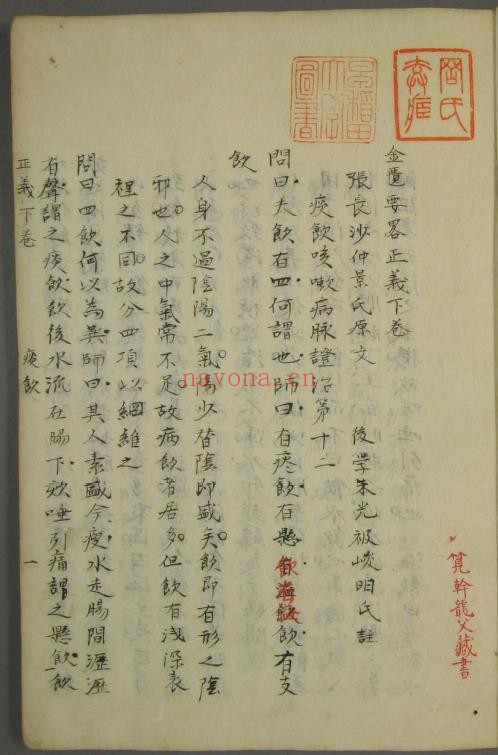 筧幹龍父藏書
金匱要畧正義下卷
張長沙仲景氏原文 後學朱光被峻明氏註
痰飲咳嗽病脉證治第十二
問曰夫飲有四何謂也師曰有痰飲有懸飲有溢飲有支
飲
人身不過陰陽二氣陽少替陰即盛矣飲即有形之陰
邪也人之中氣常不足故病飲者居多但飲有淺深表
裡之不同故分四項以綱維之
問曰四飲何以為異師曰其人素盛今瘦水走腸間瀝瀝
有聲謂之痰飲飲後水流在脇下欬唾引痛謂之懸飲飲
正義下卷 痰飲 一
nayona.cn